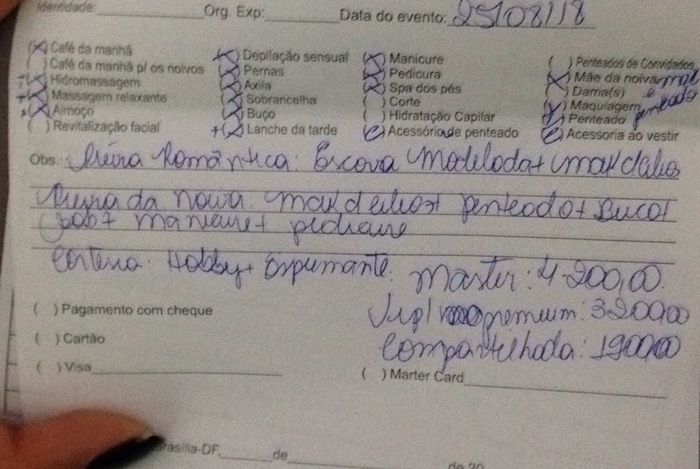 Identidade: Org. Exp: Data do evento: 25/08/18
(X) Café da manhã
( ) Café da manhã p/ os noivos
(X) Hidromassagem
(X) Massagem relaxante
(X) Almoço
( ) Revitalização facial
(X) Depilação sensual
(X) Pernas
(X) Axila
(X) Sobrancelha
(X) Buço
+(X) Lanche da tarde
(X) Manicure
(X) Pedicura
(X) Spa dos pés
( ) Corte
( ) Hidratação Capilar
( ) Acessória de penteado
( ) Penteados de Convidados
(X) Mãe da noiva mak
( ) Dama(s) e
(X) Maquiagem penteado
(X) Penteado
( ) Acessoria ao vestir
Obs.: Romântica: Escova Modelada + mak/cílios
da noiva: mak/cílios + penteado + Buço +
manicure + pedicure
Cortesia: Hobby + Espumante. Master: 4.200,00
( ) Pagamento com cheque
premium: 3200,00
( ) Cartão
Compartilhada: 1900,00
( ) Visa
( ) Marter Card
Brasília-DF, de
de 20